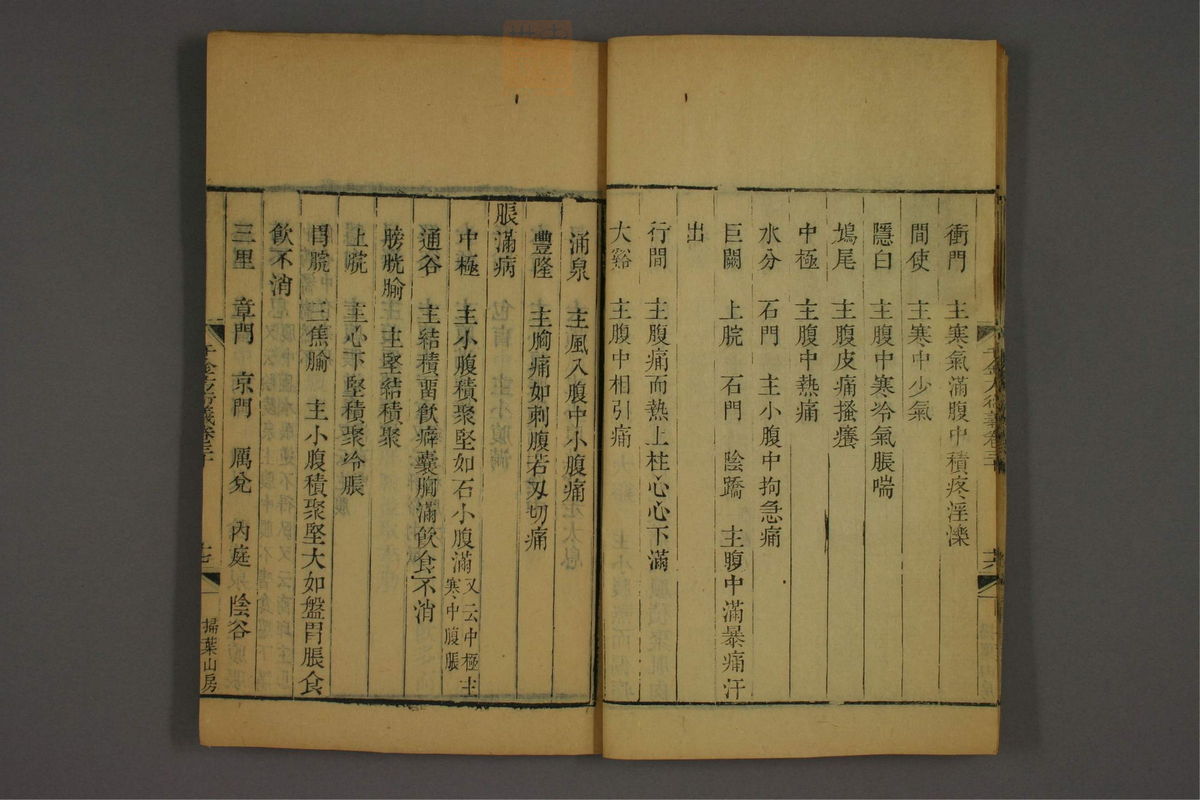 衝門　主寒氣滿腹中積疼淫濼
間使　主寒中少氣
隱白　主腹中寒冷氣脹喘
鳩尾　主腹皮痛搔癢
中極　主腹中熱痛
水分　石門　主小腹中拘急痛
巨闕　上脘　石門　陰蹻　主腹中滿暴痛汗
出
行間　主腹痛而熱上柱心心下滿
大谿　主腹中相引痛
涌泉　主風入腹中小腹痛
豐隆　主胸痛如刺腹若刄切痛
脹滿病
中極　主小腹積聚堅如石小腹滿又云中極主寒中腹脹
通谷　主結積畱飮癖囊胸滿飮食不消
膀胱腧　主堅結積聚
上脘　主心下堅積聚冷脹
胃脘　三焦腧　主小腹積聚堅大如盤胃脹食
飮不消
三里　章門　京門　厲兌　內庭　陰谷
千金方衍義卷三十
十七
掃葉山房